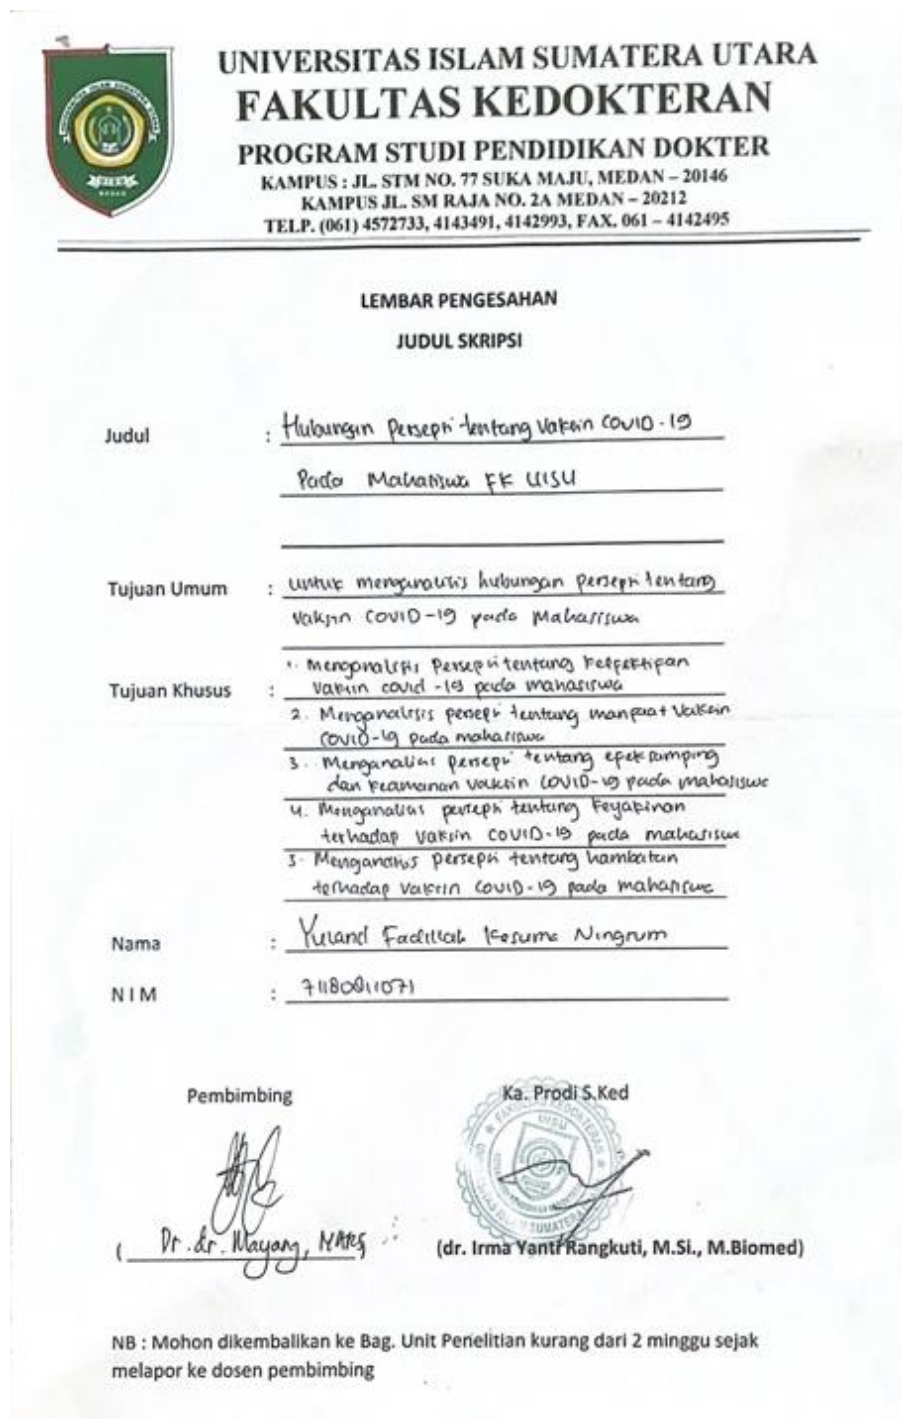 UNIVERSITAS ISLAM SUMATERA UTARA
FAKULTAS KEDOKTERAN
PROGRAM STUDI PENDIDIKAN DOKTER
KAMPUS : JL. STM NO. 77 SUKA MAJU, MEDAN – 20146
KAMPUS JL. SM RAJA NO. 2A MEDAN – 20212
TELP. (061) 4572733, 4143491, 4142993, FAX. 061 – 4142495
LEMBAR PENGESAHAN
JUDUL SKRIPSI
Judul : Hubungan Persepsi tentang Vaksin COVID-19
Pada Mahasiswa FK UISU
Tujuan Umum : untuk menganalisis hubungan persepsi tentang
Vaksin COVID-19 pada Mahasiswa
1. Menganalisis Persepsi tentang keefektipan
Tujuan Khusus : Vaksin covid-19 pada mahasiswa
2. Menganalisis persepsi tentang manfaat Vaksin
COVID-19 pada mahasiswa
3. Menganalisis persepsi tentang efek samping
dan keamanan vaksin COVID-19 pada mahasiswa
4. Menganalisis persepsi tentang keyakinan
terhadap vaksin COVID-19 pada mahasiswa
5. Menganalisis persepsi tentang hambatan
terhadap vaksin COVID-19 pada mahasiswa
Nama : Fadillah Kesuma Ningrum
NIM : 71180811071
Pembimbing
Ka. Prodi S.Ked
FAKULTAS KEDOKTERAN
UISU
( Dr. dr. Mayang, MARS
(dr. Irma Yanti Rangkuti, M.Si., M.Biomed)
NB : Mohon dikembalikan ke Bag. Unit Penelitian kurang dari 2 minggu sejak
melapor ke dosen pembimbing